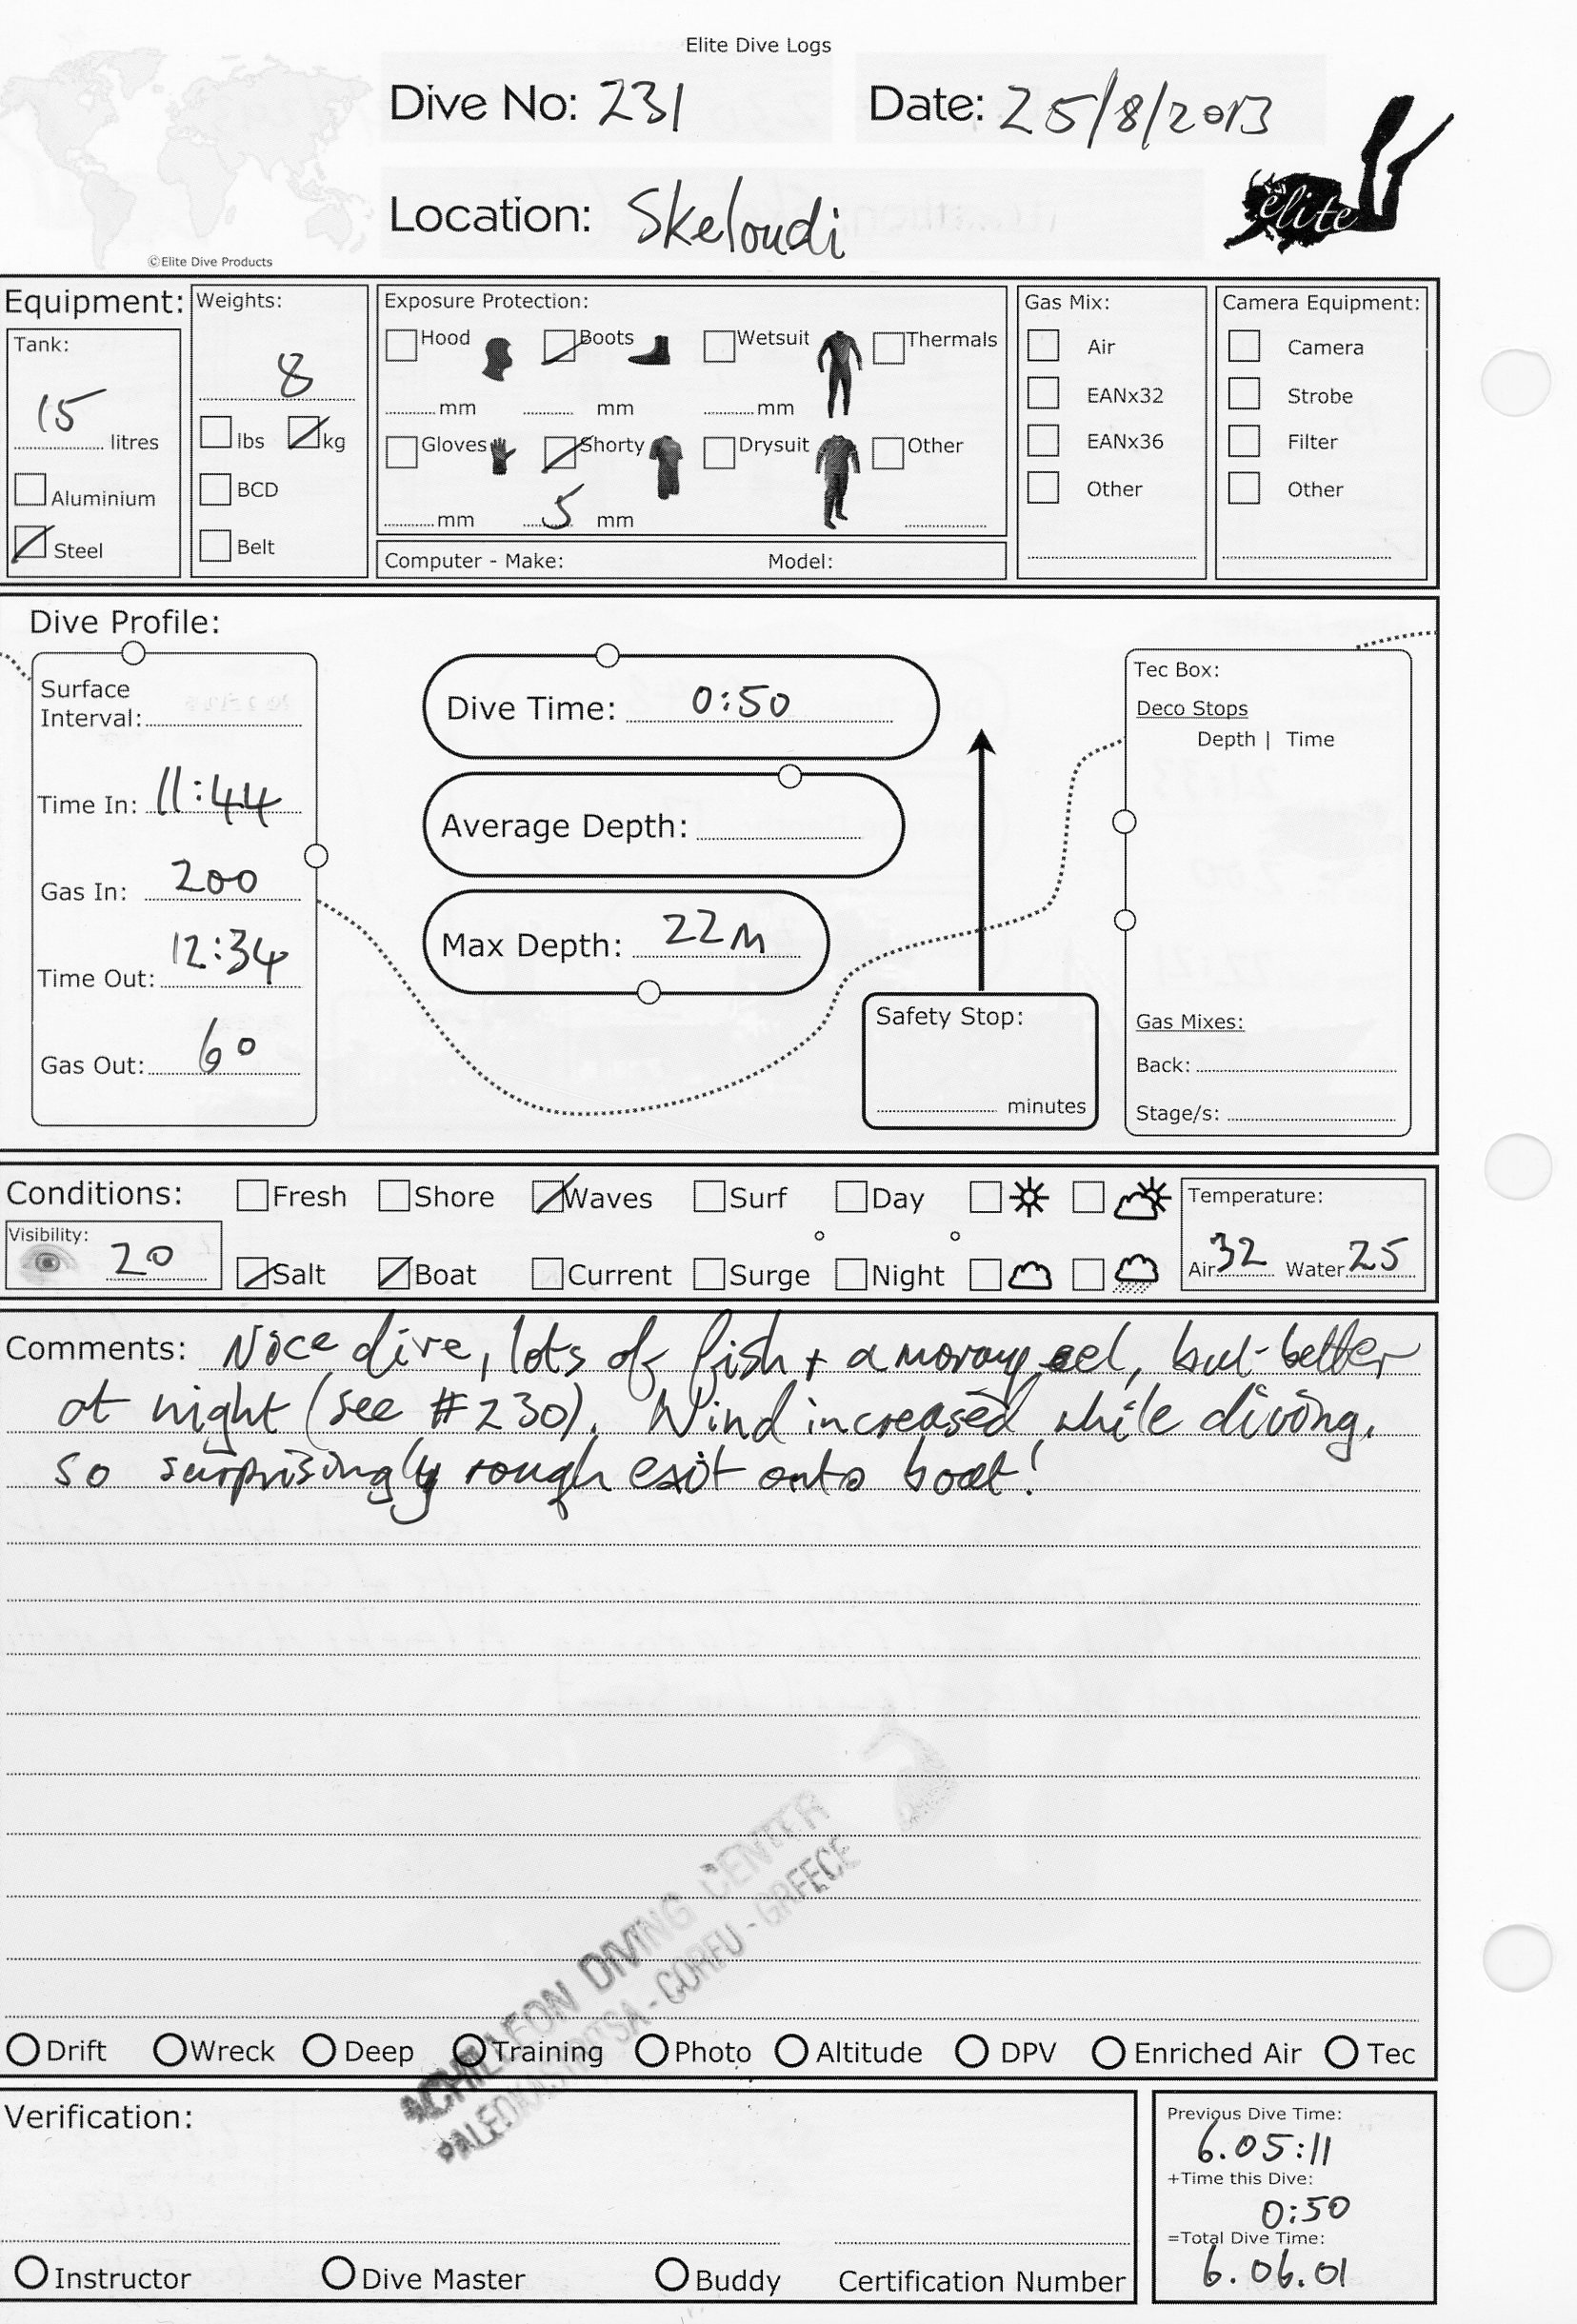 Elite Dive Logs
Dive No: 231 Date: 25/8/2013
Location: Skeloudi
elite
©Elite Dive Products
Equipment:
Tank:
15 litres
Aluminium
Steel
Weights:
8
lbs kg
BCD
Belt
Exposure Protection:
Hood Boots Wetsuit Thermals
mm mm mm
Gloves Shorty Drysuit Other
mm 5 mm
Computer - Make: Model:
Gas Mix:
Air
EANx32
EANx36
Other
Camera Equipment:
Camera
Strobe
Filter
Other
Dive Profile:
Surface
Interval:
Time In: 11:44
Gas In: 200
Time Out: 12:34
Gas Out: 60
Dive Time: 0:50
Average Depth:
Max Depth: 22m
Safety Stop:
minutes
Tec Box:
Deco Stops
Depth | Time
Gas Mixes:
Back:
Stage/s:
Conditions: Fresh Shore Waves Surf Day
Visibility: 20
Salt Boat Current Surge Night
Temperature:
Air 32 Water 25
Comments: Nice dive, lots of fish + a moray eel, but better
at night (see #230). Wind increased while diving,
so surprisingly rough exit onto boat!
ACHILLEON DIVING CENTER
PALEOKASTRITSA - CORFU - GREECE
Drift Wreck Deep Training Photo Altitude DPV Enriched Air Tec
Verification:
Instructor Dive Master Buddy Certification Number
Previous Dive Time:
6.05:11
+Time this Dive:
0:50
=Total Dive Time:
6.06.01